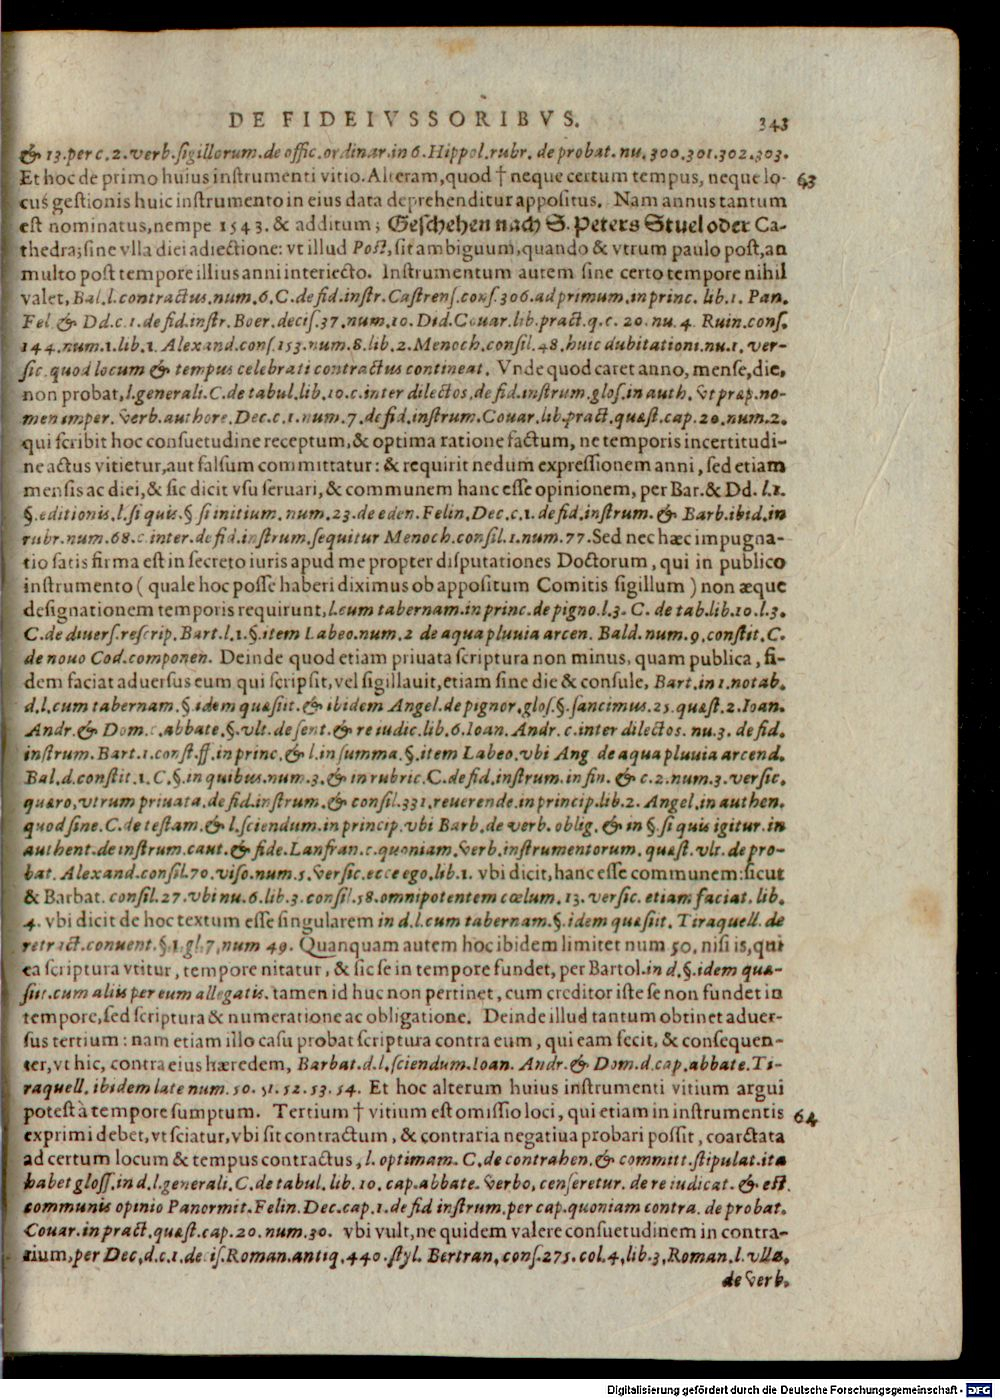 DE FIDEIVSSORIBVS. 343
& 13. per c. 2. verb. sigillorum. de offic. ordinar. in 6. Hippol. rubr. de probat. nu. 300. 301. 302. 303.
Et hoc de primo huius instrumenti vitio. Alteram, quod † neque certum tempus, neque lo- 63
cus gestionis huic instrumento in eius data deprehenditur appositus. Nam annus tantum
est nominatus, nempe 1543. & additum; Geschehen nach S. Peters Stuel oder Ca-
thedra; sine vlla diei adiectione: vt illud Post, sit ambiguum, quando & vtrum paulo post, an
multo post tempore illius anni interiecto. Instrumentum autem sine certo tempore nihil
valet, Bal. l. contractus. num. 6. C. de fid. instr. Castrens. cons. 306. ad primum. in princ. lib. 1. Pan.
Fel. & Dd. c. 1. de fid. instr. Boer. decis. 37. num. 10. Did. Couar. lib. pract. q. c. 20. nu. 4. Ruin. cons.
144. num. 1. lib. 1. Alexand. cons. 153. num. 8. lib. 2. Menoch. consil. 48. huic dubitationi. nu. 1. ver-
sic. quod locum & tempus celebrati contractus contineat. Vnde quod caret anno, mense, die,
non probat, l. generali. C. de tabul. lib. 10. c. inter dilectos. de fid. instrum. glos. in auth. vt præp. no-
men imper. verb. authore. Dec. c. 1. num. 7. de fid. instrum. Couar. lib. pract. quæst. cap. 20. num. 2.
qui scribit hoc consuetudine receptum, & optima ratione factum, ne temporis incertitudi-
ne actus vitietur, aut falsum committatur: & requirit nedum expressionem anni, sed etiam
mensis ac diei, & sic dicit vsu seruari, & communem hanc esse opinionem, per Bar. & Dd. l. 1.
§. editionis. l. si quis. § si initium. num. 23. de eden. Felin. Dec. c. 1. de fid. instrum. & Barb. ibid. in
rubr. num. 68. c. inter. de fid. instrum. sequitur Menoch. consil. 1. num. 77. Sed nec hæc impugna-
tio satis firma est in secreto iuris apud me propter disputationes Doctorum, qui in publico
instrumento (quale hoc posse haberi diximus ob appositum Comitis sigillum) non æque
designationem temporis requirunt, l. cum tabernam. in princ. de pigno. l. 3. C. de tab. lib. 10. l. 3.
C. de diuers. rescrip. Bart. l. 1. §. item Labeo. num. 2 de aqua pluuia arcen. Bald. num. 9. constit. C.
de nouo Cod. componen. Deinde quod etiam priuata scriptura non minus, quam publica, fi-
dem faciat aduersus eum qui scripsit, vel sigillauit, etiam sine die & consule, Bart. in 1. notab.
d. l. cum tabernam. §. idem quæsiit. & ibidem Angel. de pignor. glos. §. sancimus. 25. quæst. 2. Ioan.
Andr. & Dom. c. abbate §. vlt. de sent. & re iudic. lib. 6. Ioan. Andr. c. inter dilectos. nu. 3. de fid.
instrum. Bart. 1. const. ff. in princ. & l. in summa. §. item Labeo. vbi Ang de aqua pluuia arcend.
Bal. d. constit. 1. C. §. in quibus. num. 3. & in rubric. C. de fid. instrum. in fin. & c. 2. num. 3. versic.
quæro, vtrum priuata. de fid. instrum. & consil. 331. reuerende. in princip. lib. 2. Angel. in authen.
quod sine. C. de testam. & l. sciendum. in princip. vbi Barb. de verb. oblig. & in §. si quis igitur. in
authent. de instrum. caut. & fide. Lanfran. c. quoniam. verb. instrumentorum. quæst. vlt. de pro-
bat. Alexand. consil. 70. viso. num. 5. versic. ecce ego. lib. 1. vbi dicit, hanc esse communem: sicut
& Barbat. consil. 27. vbi nu. 6. lib. 3. consil. 58. omnipotentem cœlum. 13. versic. etiam faciat. lib.
4. vbi dicit de hoc textum esse singularem in d. l. cum tabernam. §. idem quæsiit. Tiraquell. de
retract. conuent. §. 1. gl. 7. num 49. Quanquam autem hoc ibidem limitet num 50. nisi is, qui
ea scriptura vtitur, tempore nitatur, & sic se in tempore fundet, per Bartol. in d. §. idem quæ-
siit. cum aliis per eum allegatis. tamen id huc non pertinet, cum creditor iste se non fundet in
tempore, sed scriptura & numeratione ac obligatione. Deinde illud tantum obtinet aduer-
sus tertium: nam etiam illo casu probat scriptura contra eum, qui eam fecit, & consequen-
ter, vt hic, contra eius hæredem, Barbat. d. l. sciendum. Ioan. Andr. & Dom. d. cap. abbate. Ti-
raquell. ibidem late num. 50. 51. 52. 53. 54. Et hoc alterum huius instrumenti vitium argui
potest à tempore sumptum. Tertium † vitium est omissio loci, qui etiam in instrumentis 64
exprimi debet, vt sciatur, vbi sit contractum, & contraria negatiua probari possit, coarctata
ad certum locum & tempus contractus, l. optimam. C. de contrahen. & committ. stipulat. ita
habet gloss. in d. l. generali. C. de tabul. lib. 10. cap. abbate. verbo, censeretur. de re iudicat. & est
communis opinio Panormit. Felin. Dec. cap. 1. de fid instrum. per cap. quoniam contra. de probat.
Couar. in pract. quæst. cap. 20. num. 30. vbi vult, ne quidem valere consuetudinem in contra-
rium, per Dec. d. c. 1. decis. Roman. antiq. 440. styl. Bertran. cons. 275. col. 4. lib. 3. Roman. l. vlla.
de verb.
Digitalisierung gefördert durch die Deutsche Forschungsgemeinschaft - DFG